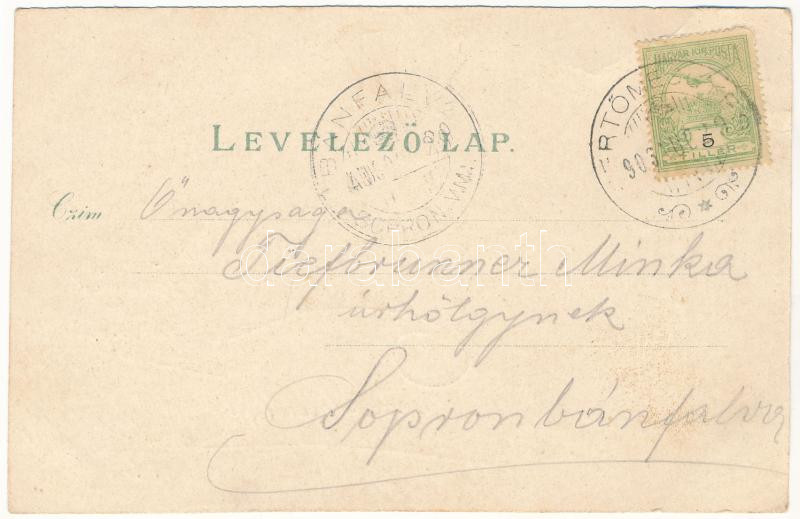 MAGYAR KIR. POSTA
5
FILLÉR
BÁNFALVA
SOPRON VM.
LEVELEZŐ-LAP.
Czim
Őnagysága
Tiefbrunner Minka
úrhölgynek
Sopronbánfalva
darabanth